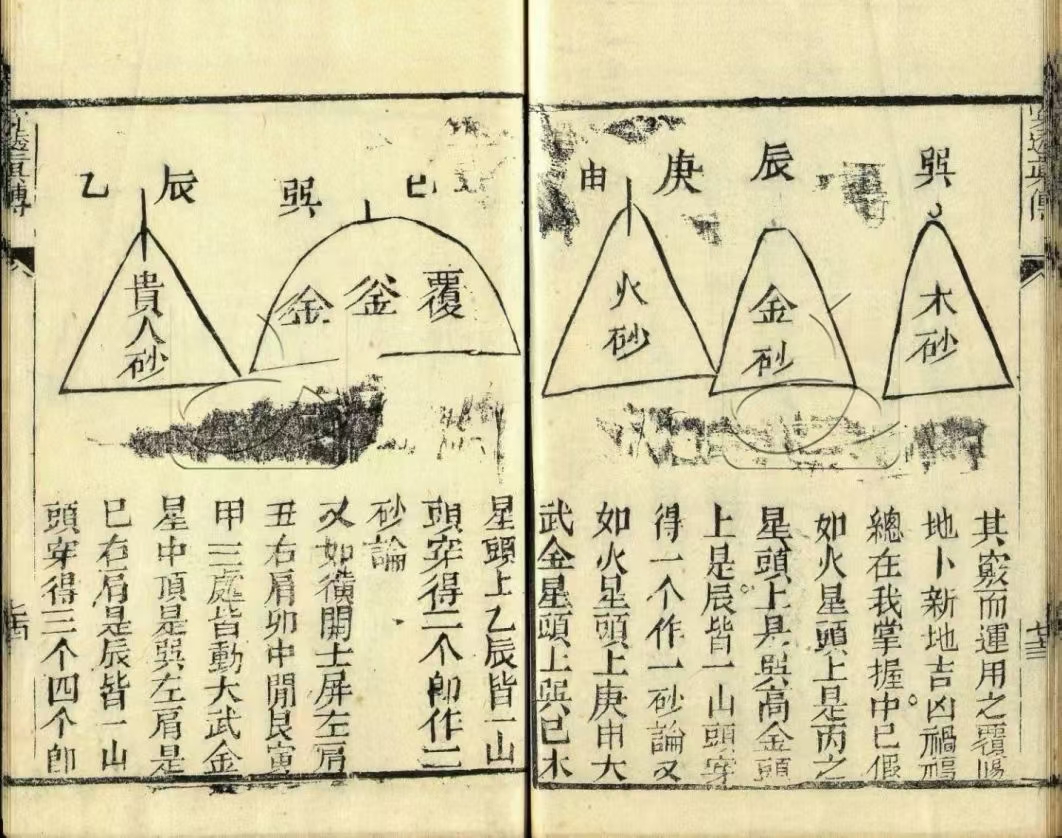 巽
木砂
辰
金砂
庚
申
火砂
其竅而運用之覆陽
地卜新地吉凶禍福
總在我掌握中已假
如火星頭上是丙之
星頭上是巽高金頭
上是辰皆一山頭穿
得一个作一砂論又
如火星頭上庚申大
武金星頭上巽巳木
巳
巽
覆釜金
辰
乙
貴人砂
星頭上乙辰皆一山
頭穿得二个卽作二
砂論
又如橫開土屏左肩
丑右肩卯中間艮寅
甲三處皆動大武金
星中頂是巽左肩是
巳右肩是辰皆一山
頭穿得三个四个卽